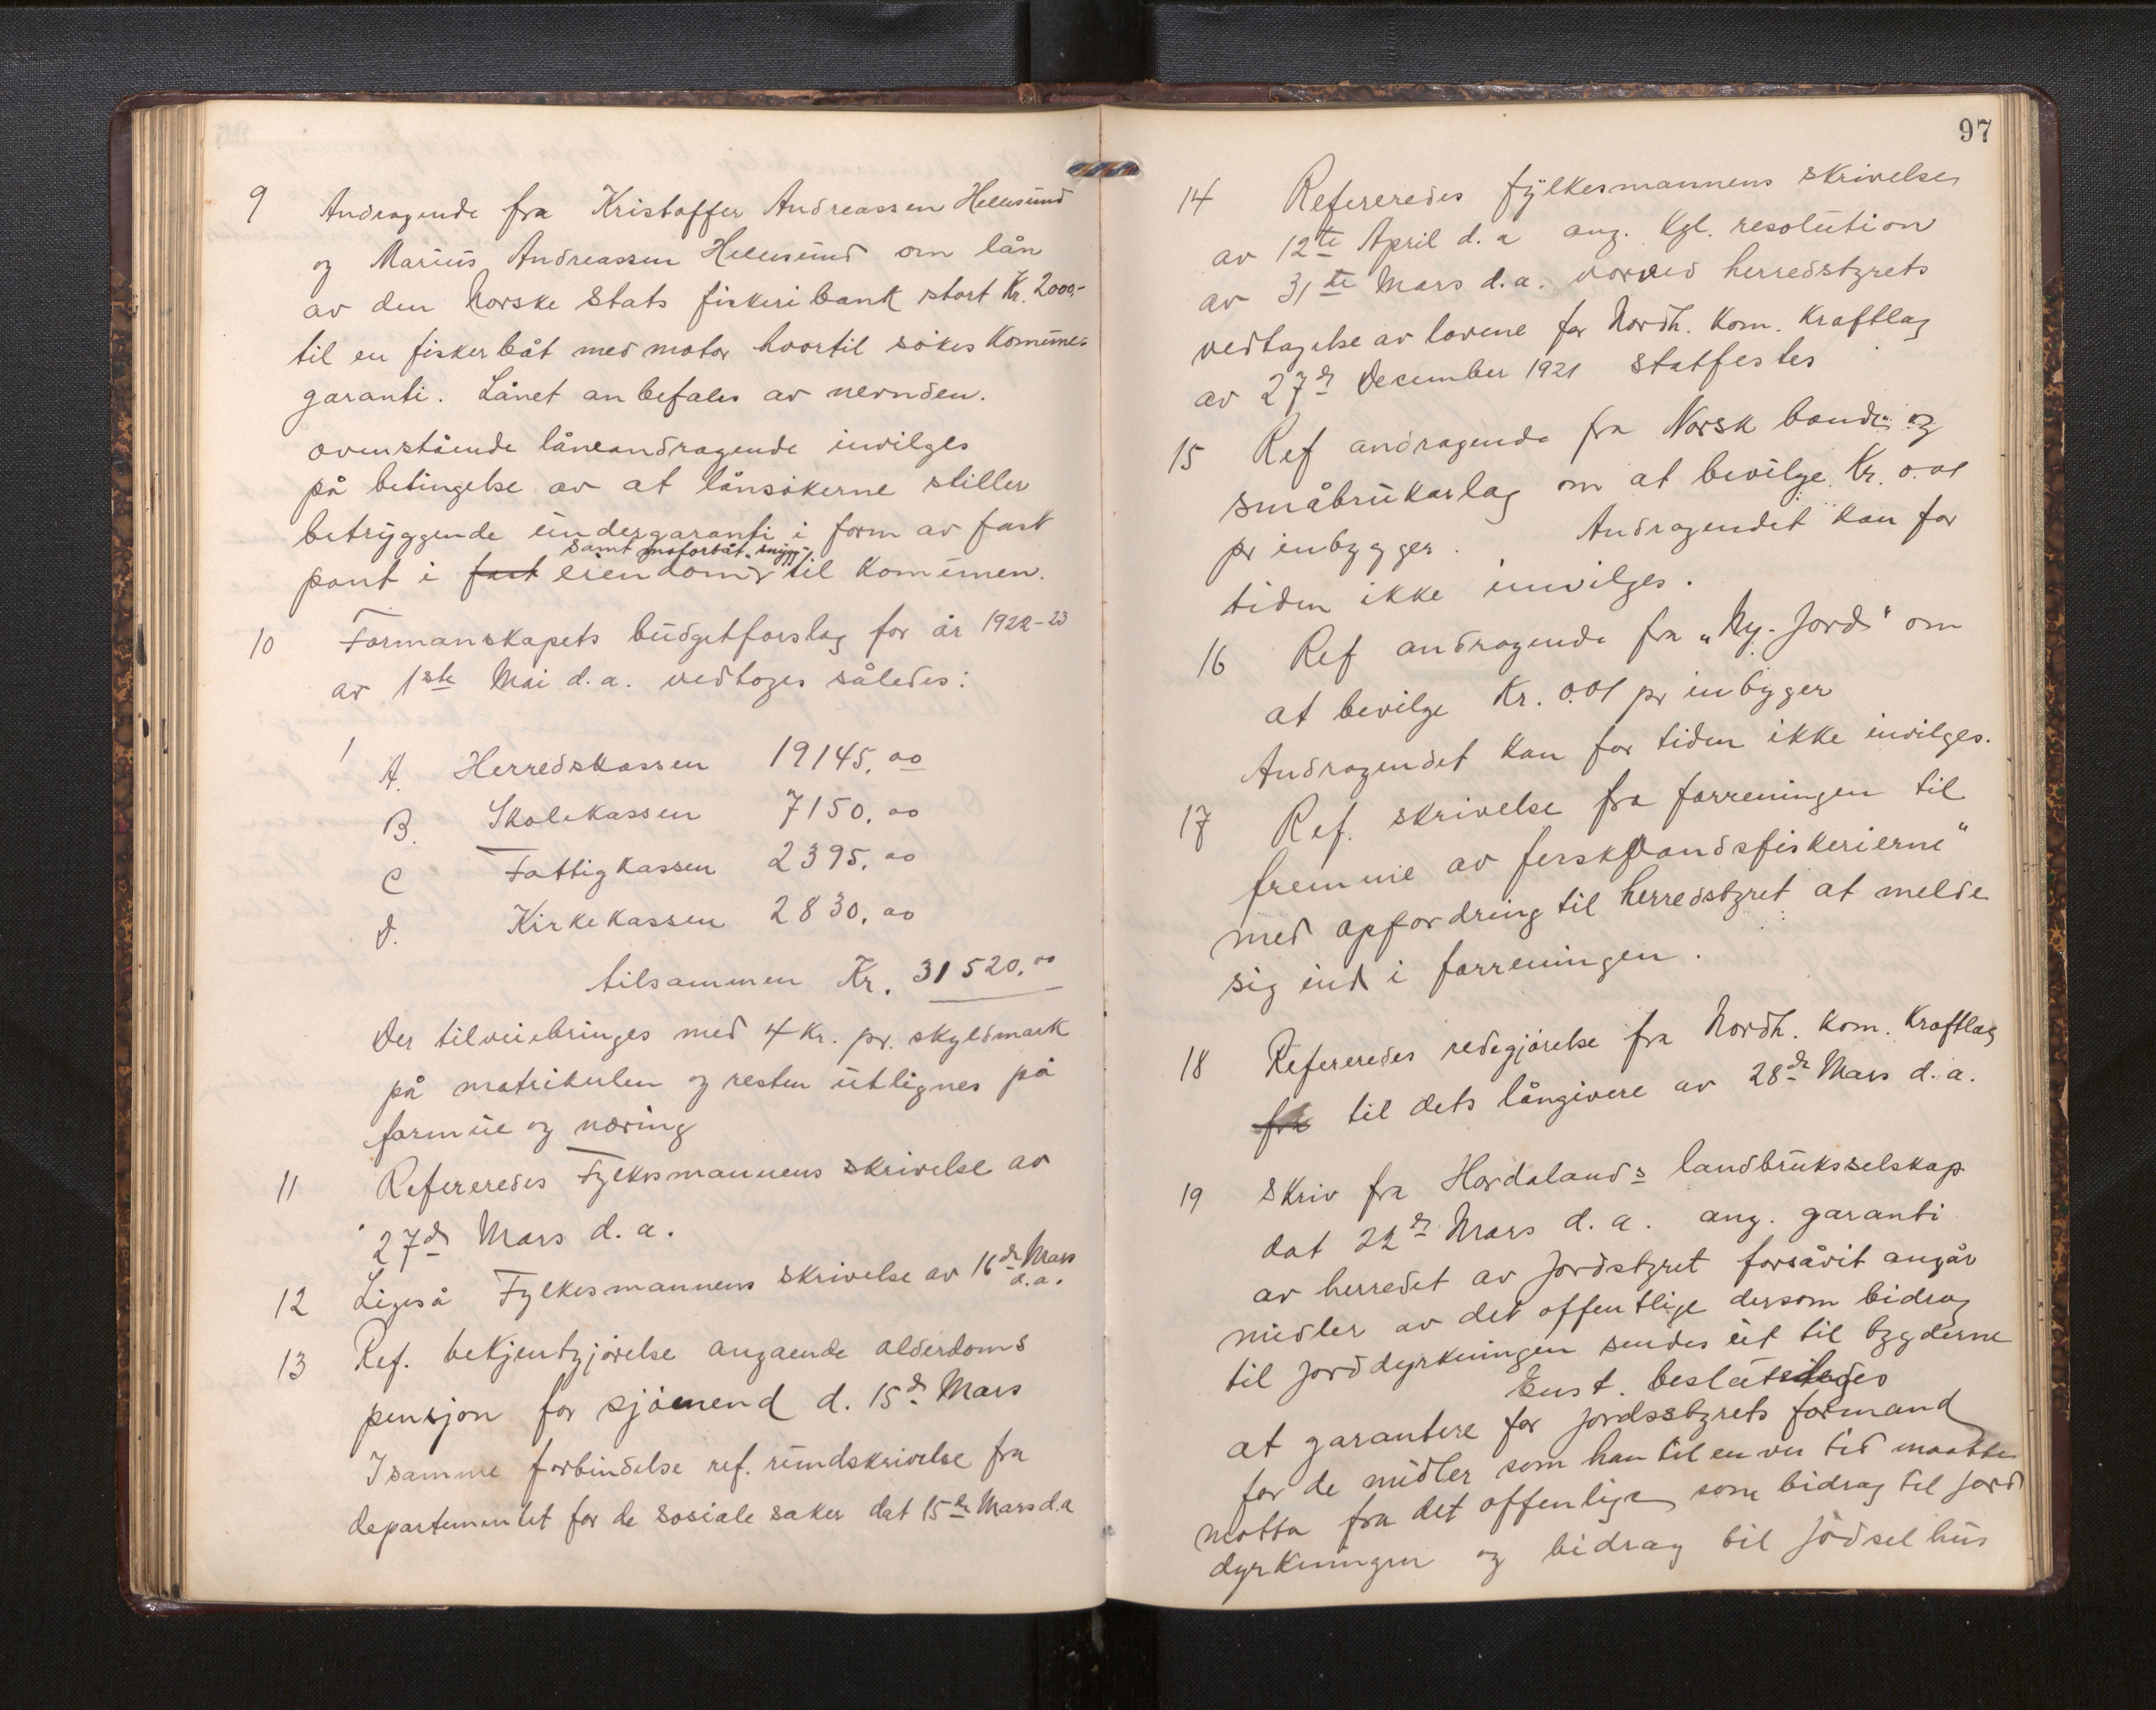 9 Andragende fra Kristoffer Andreassen Hellesund
og Marius Andreassen Hellesund om lån
av den Norske Stats fiskeribank stort Kr. 2000,-
til en fiskerbåt med motor hvortil søkes Komune-
garanti. Lånet anbefales av nevnden.
ovenstående låneandragende invilges
på betingelse av at lånsøkerne stiller
betryggende undergaranti i form av fast
samt motorbåt „snygg"
pant i fast eiendom til Komunen.
10 Formanskapets budgetforslag for år 1922-23
av 1ste Mai d.a. vedtoges således:
1 A. Herredskassen 19145,00
B. Skolekassen 7150,00
C Fattigkassen 2395,00
D. Kirkekassen 2830,00
tilsammen Kr. 31520,00
Der tilveiebringes med 4 Kr. pr. skyldmark
på matrikulen og resten utlignes på
formue og næring
11 Refereredes Fylkesmannens skrivelse av
27de Mars d.a.
12 Ligeså Fylkesmannens skrivelse av 16de Mars
d.a.
13 Ref. bekjentgjørelse angaende alderdoms
pensjon for sjømend d. 15de Mars
I samme forbindelse ref. rundskrivelse fra
departementet for de sosiale saker dat 15de Mars d.a
97
14 Refereredes fylkesmannens skrivelse
av 12te April d.a ang. Kgl. resolution
av 31te Mars d.a. vorved herredstyrets
vedtagelse av lovene for Nordh. Kom. Kraftlag
av 27de December 1921 statfestes
15 Ref andragende fra Norsk bonde- og
småbrukarlag om at bevilge Kr. 0.01
pr inbygger. Andragendet kan for
tiden ikke invilges.
16 Ref andragende fra „Ny-Jord" om
at bevilge Kr. 0.01 pr inbyger
Andragendet kan for tiden ikke invilges.
17 Ref. skrivelse fra forreningen til
fremme av ferskvandsfiskerierne"
med opfordring til herredstyret at melde
sig ind i forreningen.
18 Refereredes redegjørelse fra Nordh. Kom. Kraftlag
fra til dets långivere av 28de Mars d.a.
19 Skriv fra Hordalands landbruksselskap
dat 22de Mars d.a. ang. garanti
av herredet av Jordstyret forsåvit angår
midler av det offentlige dersom bidrag
til jorddyrkningen sendes ut til bygderne
Enst. beslutedes
at garantere for jordsstyrets formand
for de midler som han til en ver tid maatte
motta fra det offenlige som bidrag til jord
dyrkningen og bidrag til jødselhus